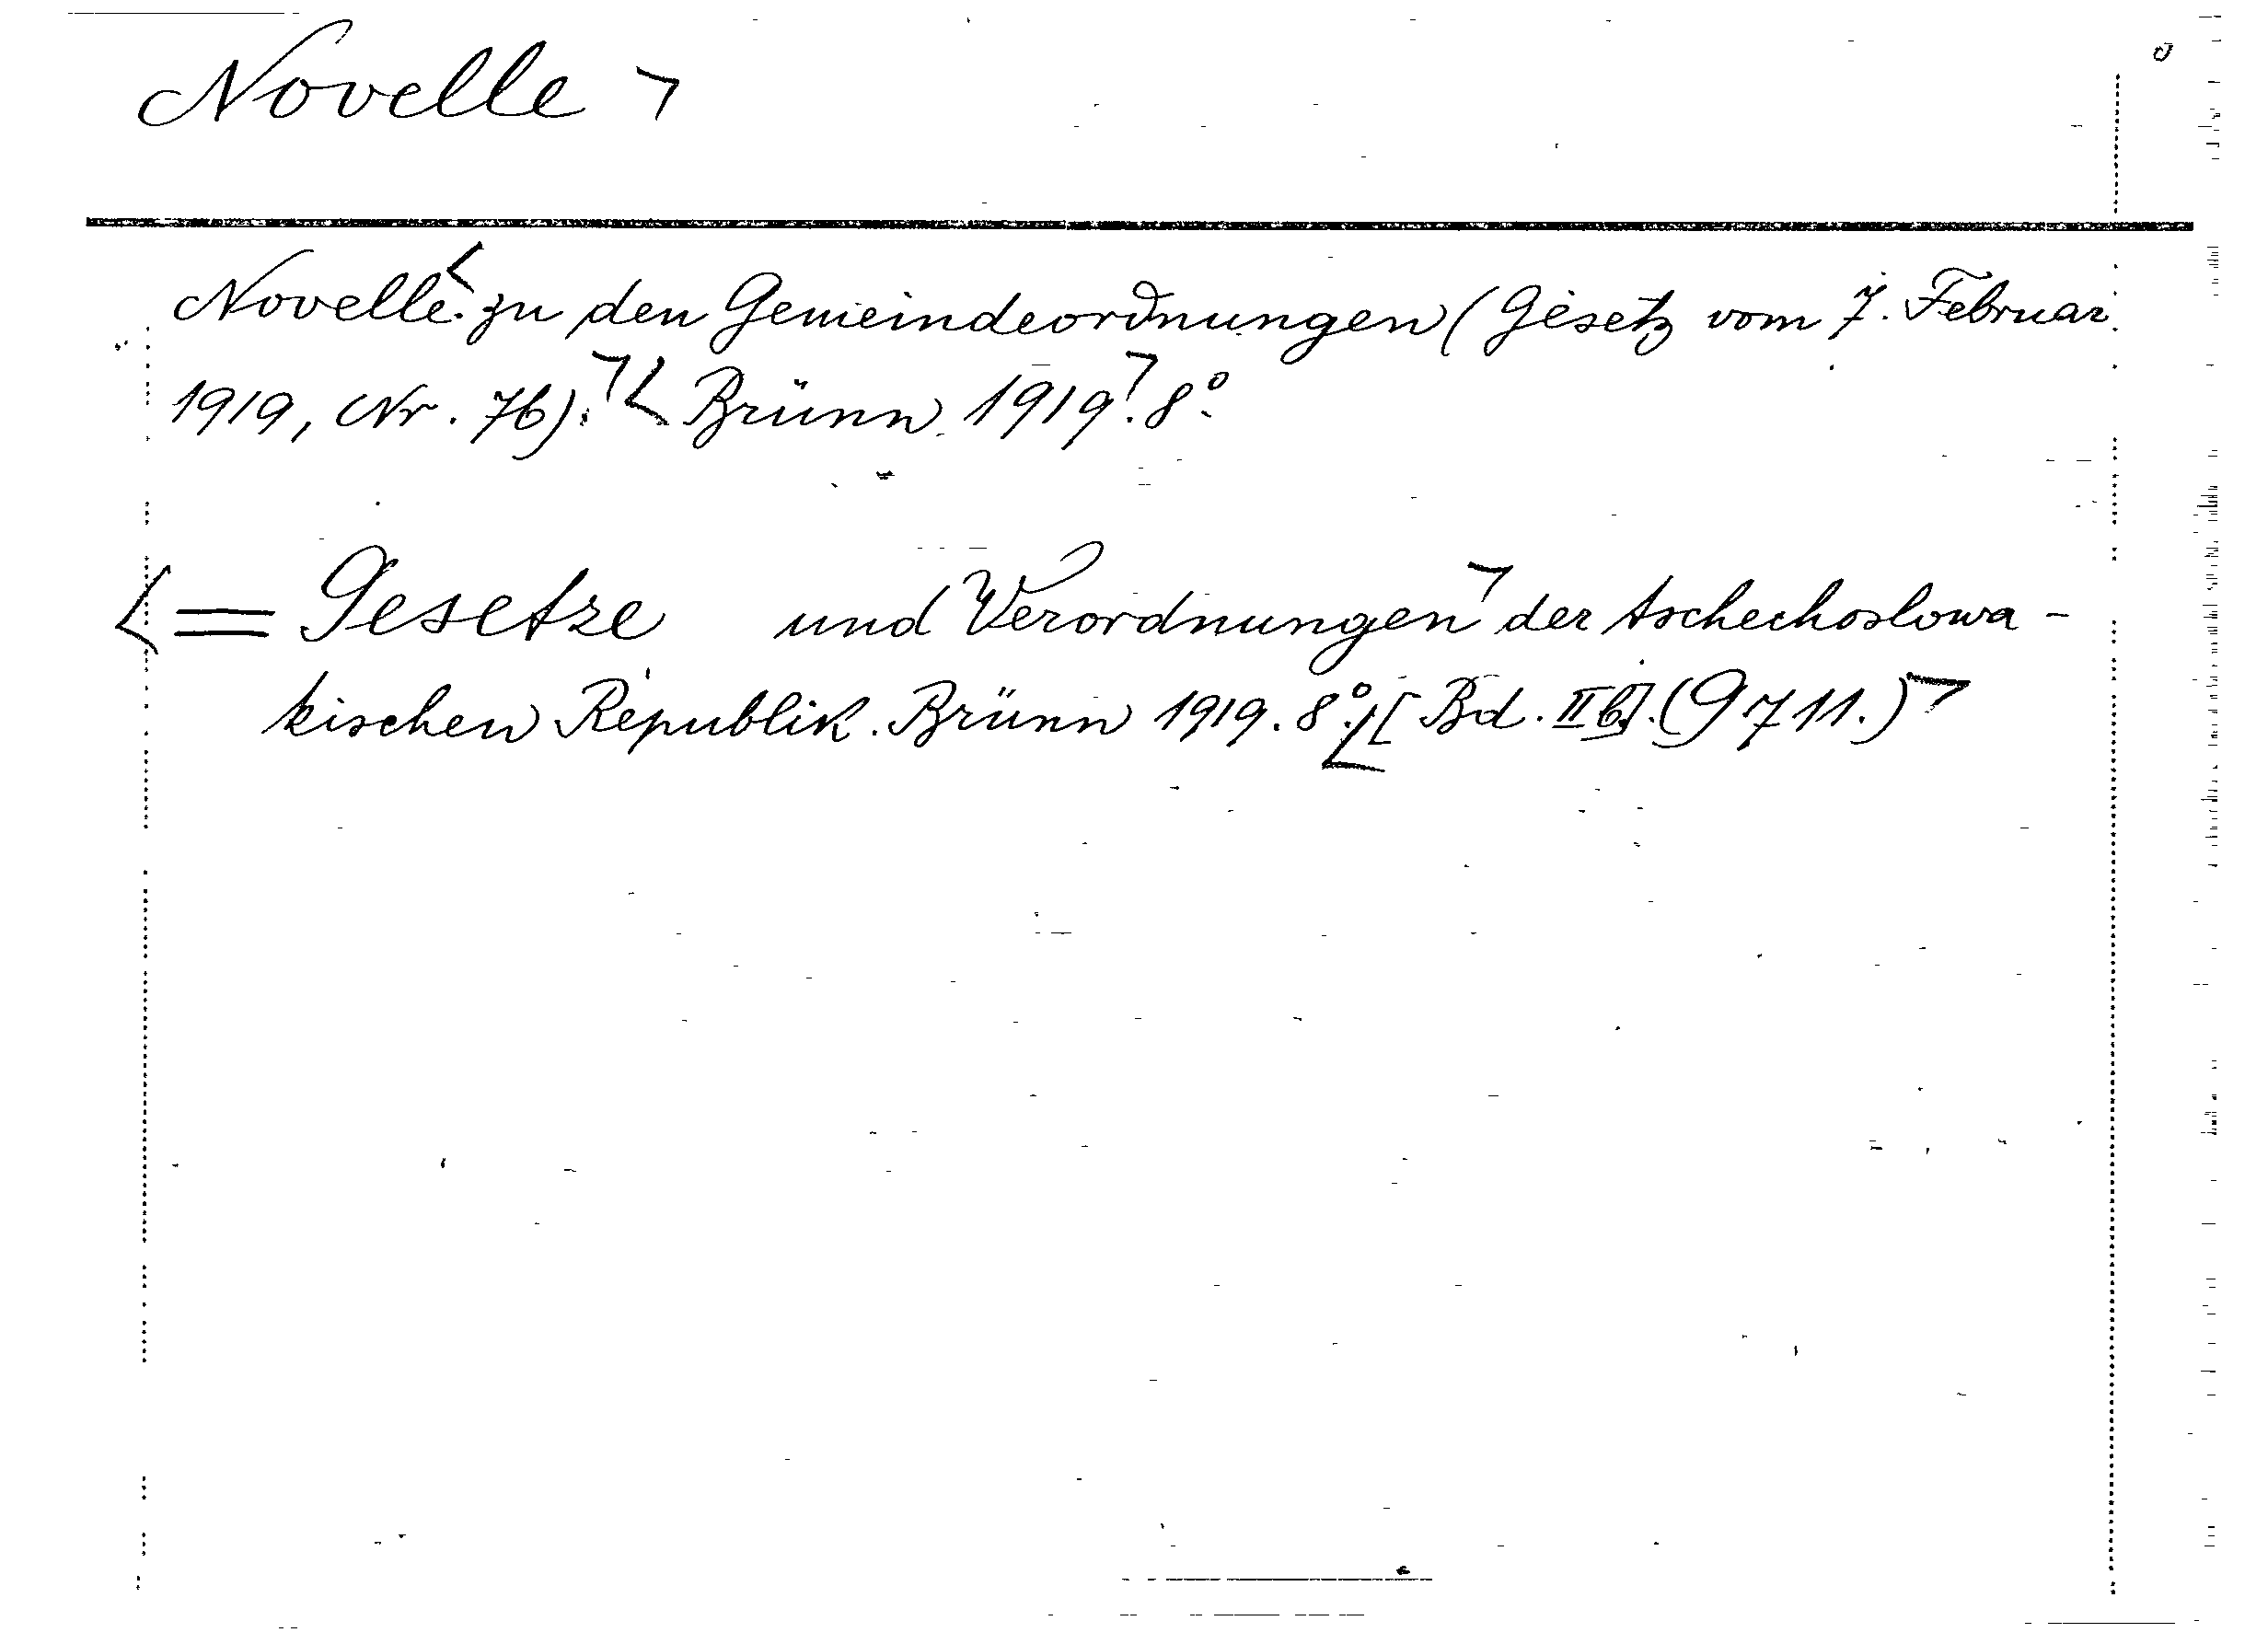 Novelle ¬
Novelle zu den Gemeindeordnungen (Gesetz vom 7. Februar
1919, Nr. 76). Brünn 1919. 8°.
= Gesetze und Verordnungen der tschechoslowa-
kischen Republik. Brünn 1919. 8°. [Bd. II b]. (9711.)